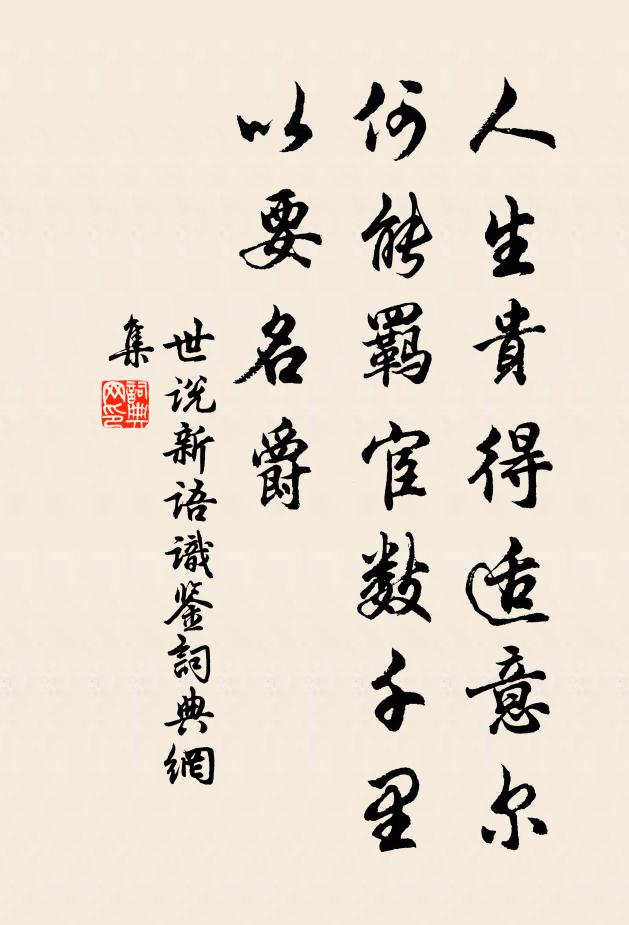 人生貴得适意尔
何能羈宦数千里
以要名爵
世说新语識鉴詞典網
集
詞典网印